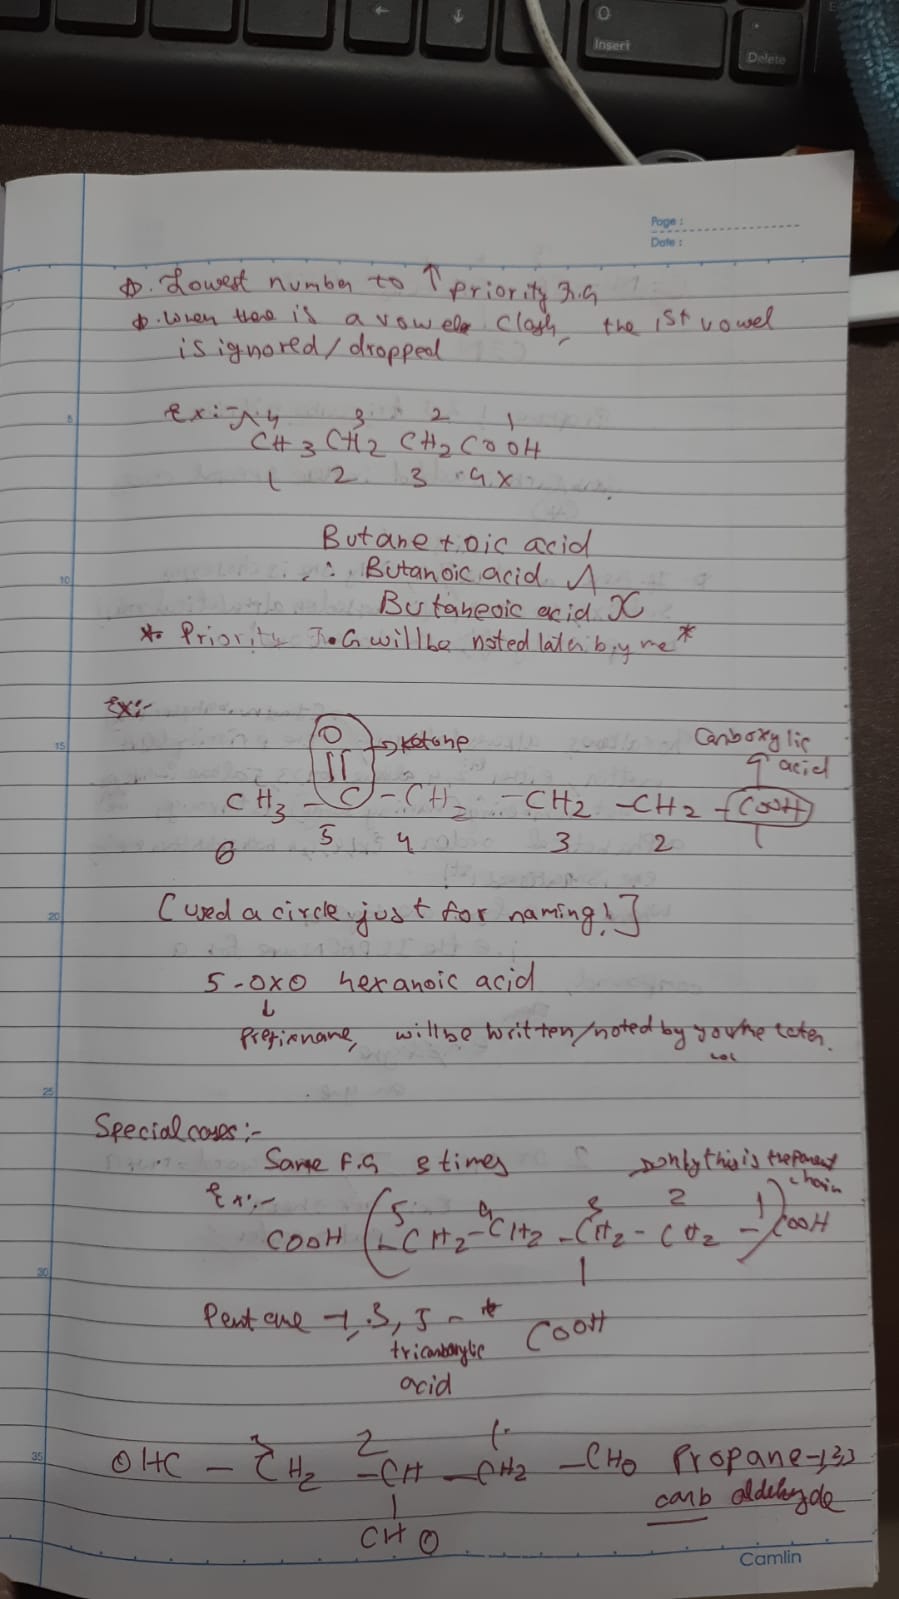 Insert
Delete
Page :
Date :
Lowest number to ↑ priority F.G
When there is a vowel clash, the 1st vowel
is ignored/dropped
Ex:-
4 3 2 1
CH3 CH2 CH2 COOH
1 2 3 4 x
Butane + oic acid
∴ Butanoic acid
Butaneoic acid X
* Priority F.G will be noted later by me *
Ex:-
O → ketone
Carboxylic
acid
CH3 - C - CH2 - CH2 - CH2 - COOH
6 5 4 3 2 1
[used a circle just for naming!]
5-oxo hexanoic acid
↓
Prefix name, will be written/noted by later.
lol
Special cases:-
Same F.G 3 times
only this is the parent
chain
Ex:-
5 4 3 2 1
COOH (-CH2-CH2-CH2-CH2-) COOH
Pentane -1,3,5-
COOH
tricarboxylic
acid
3 2 1
OHC - CH2 - CH - CH2 - CHO Propane-
carb aldehyde
CHO
5
10
15
20
25
30
35
Camlin